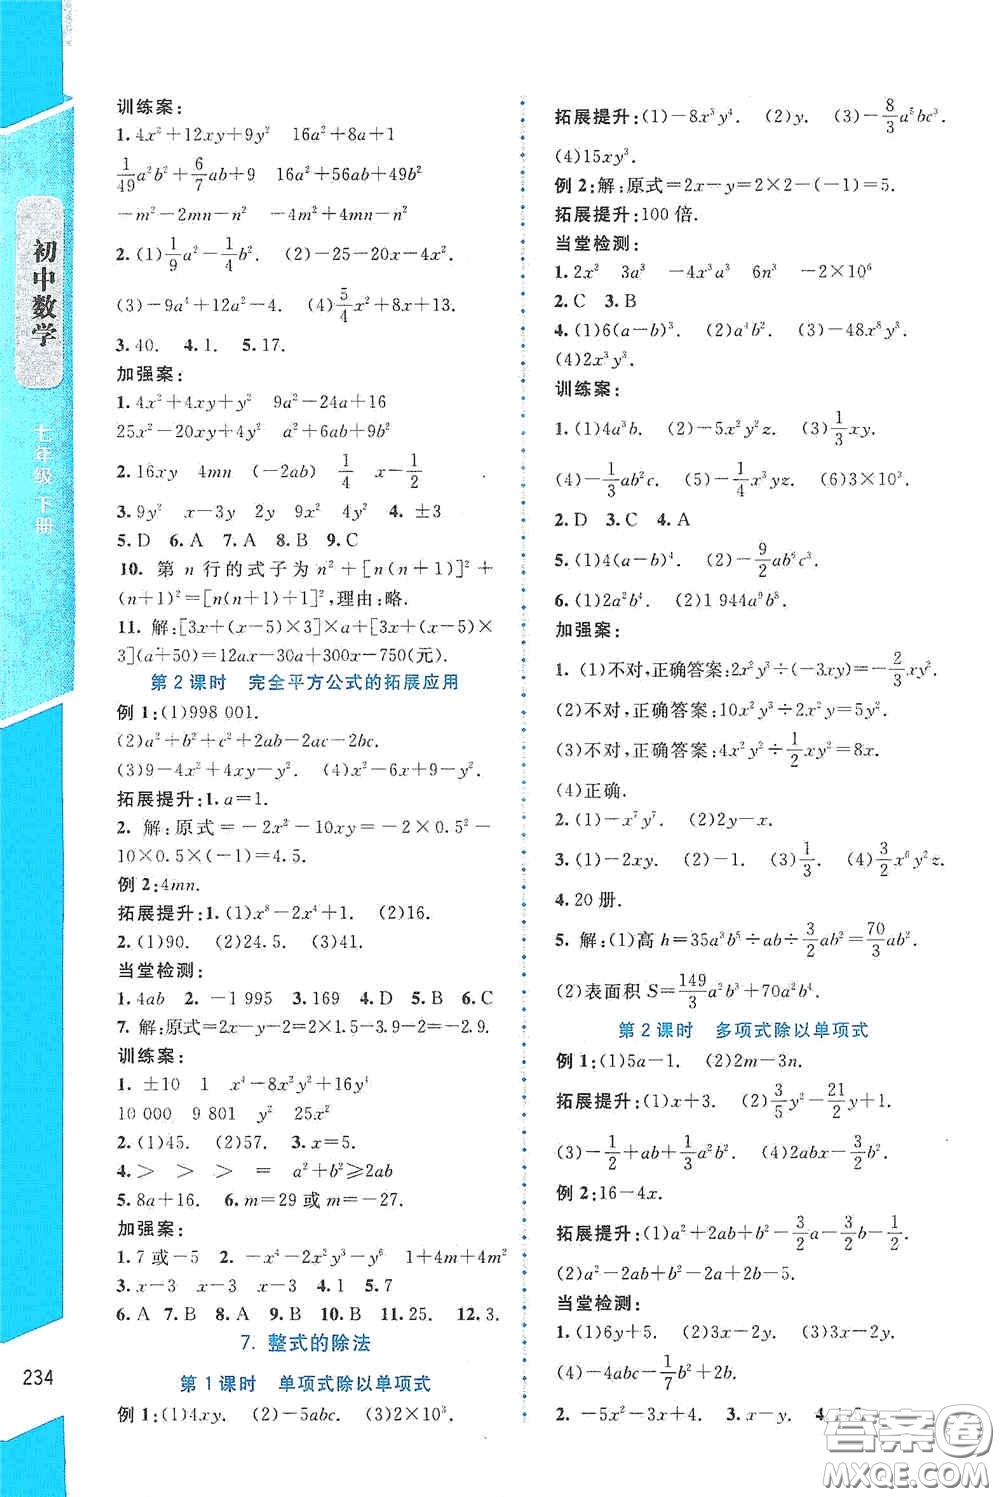 初中数学
七年级 下册
234
训练案:
1. 4x²+12xy+9y² 16a²+8a+1
1/49a²b²+6/7ab+9 16a²+56ab+49b²
-m²-2mn-n² -4m²+4mn-n²
2. (1)1/9a²-1/4b². (2)-25-20x-4x².
(3)-9a⁴+12a²-4. (4)5/4x²+8x+13.
3. 40. 4. 1. 5. 17.
加强案:
1. 4x²+4xy+y² 9a²-24a+16
25x²-20xy+4y² a²+6ab+9b²
2. 16xy 4mn (-2ab) 1/4 x-1/2
3. 9y² x-3y 2y 9x² 4y² 4. ±3
5. D 6. A 7. A 8. B 9. C
10. 第 n 行的式子为 n²+[n(n+1)]²+
(n+1)²=[n(n+1)+1]²,理由:略.
11. 解:[3x+(x-5)×3]×a+[3x+(x-5)×
3](a+50)=12ax-30a+300x-750(元).
第 2 课时 完全平方公式的拓展应用
例 1:(1)998 001.
(2)a²+b²+c²+2ab-2ac-2bc.
(3)9-4x²+4xy-y². (4)x²-6x+9-y².
拓展提升:1. a=1.
2. 解:原式=-2x²-10xy=-2×0.5²-
10×0.5×(-1)=4.5.
例 2:4mn.
拓展提升:1. (1)x⁸-2x⁴+1. (2)16.
2. (1)90. (2)24.5. (3)41.
当堂检测:
1. 4ab 2. -1 995 3. 169 4. D 5. B 6. C
7. 解:原式=2x-y-2=2×1.5-3-2=-2.9.
训练案:
1. ±10 1 x⁴-8x²y²+16y⁴
10 000 9 801 y² 25x²
2. (1)45. (2)57. 3. x=5.
4. > > > = a²+b²≥2ab
5. 8a+16. 6. m=29 或 m=-27.
加强案:
1. 7 或-5 2. -x⁴-2x²y³-y⁶ 1+4m+4m²
3. x-3 x-3 x-3 4. 1 5. 7
6. A 7. B 8. A 9. B 10. B 11. 25. 12. 3.
7. 整式的除法
第 1 课时 单项式除以单项式
例 1:(1)4xy. (2)-5abc. (3)2×10³.
拓展提升:(1)-8x³y⁴. (2)y. (3)-8/3a⁵bc³.
(4)15xy³.
例 2:解:原式=2x-y=2×2-(-1)=5.
拓展提升:100 倍.
当堂检测:
1. 2x² 3a³ -4x³y² 6n³ -2×10⁶
2. C 3. B
4. (1)6(a-b)³. (2)a⁴b². (3)-48x⁸y³.
(4)2x³y³.
训练案:
1. (1)4a³b. (2)-5x²y²z. (3)1/3xy.
(4)-1/3ab²c. (5)-1/4x³yz. (6)3×10⁷.
2. D 3. C 4. A
5. (1)4(a-b)⁴. (2)-9/2ab⁶c³.
6. (1)2a²b⁴. (2)1 944a⁹b⁵.
加强案:
1. (1)不对,正确答案:2x²y³÷(-3xy)=-2/3xy².
(2)不对,正确答案:10x²y³÷2x²y=5y².
(3)不对,正确答案:4x²y²÷1/2xy²=8x.
(4)正确.
2. (1)-x⁷y⁷. (2)y-x.
3. (1)-2xy. (2)-1. (3)1/3. (4)3/2x⁶y²z.
4. 20 册.
5. 解:(1)高 h=35a³b⁵÷ab÷3/2ab²=70/3ab².
(2)表面积 S=149/3a²b³+70a²b⁴.
第 2 课时 多项式除以单项式
例 1:(1)5a-1. (2)2m-3n.
拓展提升:(1)x+3. (2)3/5y²-21/2y+1.
(3)-1/2+ab+1/3a²b². (4)2abx-3/2b²x².
例 2:16-4x.
拓展提升:(1)a²+2ab+b²-3/2a-3/2b-1/2.
(2)a²-2ab-b²-8.
当堂检测:
1. (1)6y+5. (2)3x-2y. (3)-3x²+4x.
(4)-4abc-1/7b²+2.
2. -5x²-3x+4. 3. x-y.
答案圈
MXQE.COM